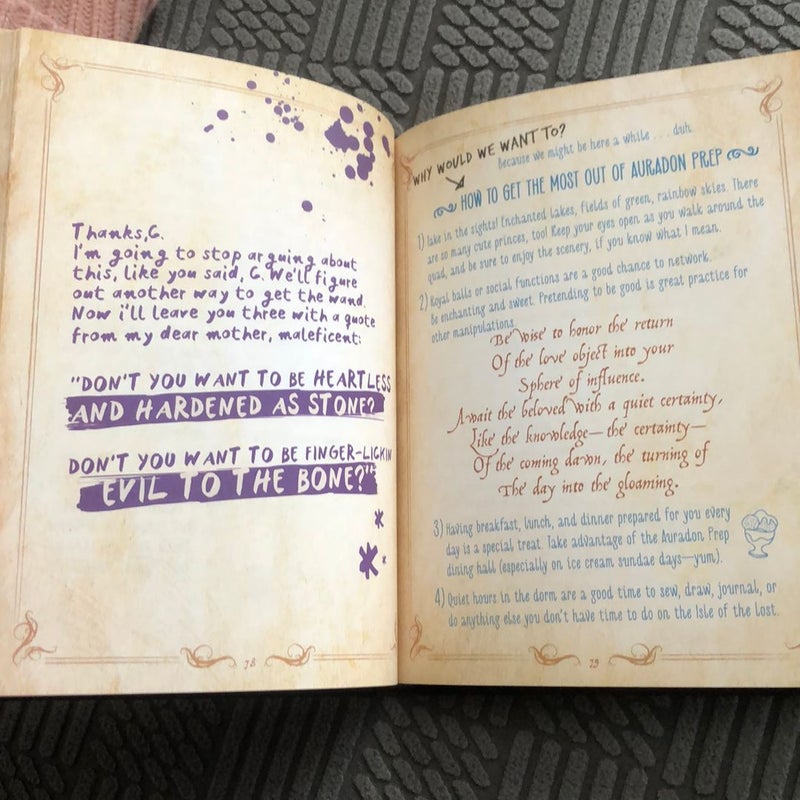 Thanks,G.
I'm going to stop arguing about
this, like you said, G. We'll figure
out another way to get the wand.
Now i'll leave you three with a quote
from my dear mother, maleficent:
"DON'T YOU WANT TO BE HEARTLESS
AND HARDENED AS STONE?
DON'T YOU WANT TO BE FINGER-LICKIN
EVIL TO THE BONE?"
78
WHY WOULD WE WANT TO?
Because we might be here a while . . . duh.
HOW TO GET THE MOST OUT OF AURADON PREP
1) Take in the sights! Enchanted lakes, fields of green, rainbow skies. There
are so many cute princes, too! Keep your eyes open as you walk around the
quad, and be sure to enjoy the scenery, if you know what I mean.
2) Royal balls or social functions are a good chance to network.
Be enchanting and sweet. Pretending to be good is great practice for
other manipulations.
Be wise to honor the return
Of the love object into your
Sphere of influence.
Await the beloved with a quiet certainty,
Like the knowledge—the certainty—
Of the coming dawn, the turning of
The day into the gloaming.
3) Having breakfast, lunch, and dinner prepared for you every
day is a special treat. Take advantage of the Auradon Prep
dining hall (especially on ice cream sundae days—yum).
4) Quiet hours in the dorm are a good time to sew, draw, journal, or
do anything else you don't have time to do on the Isle of the Lost.
79